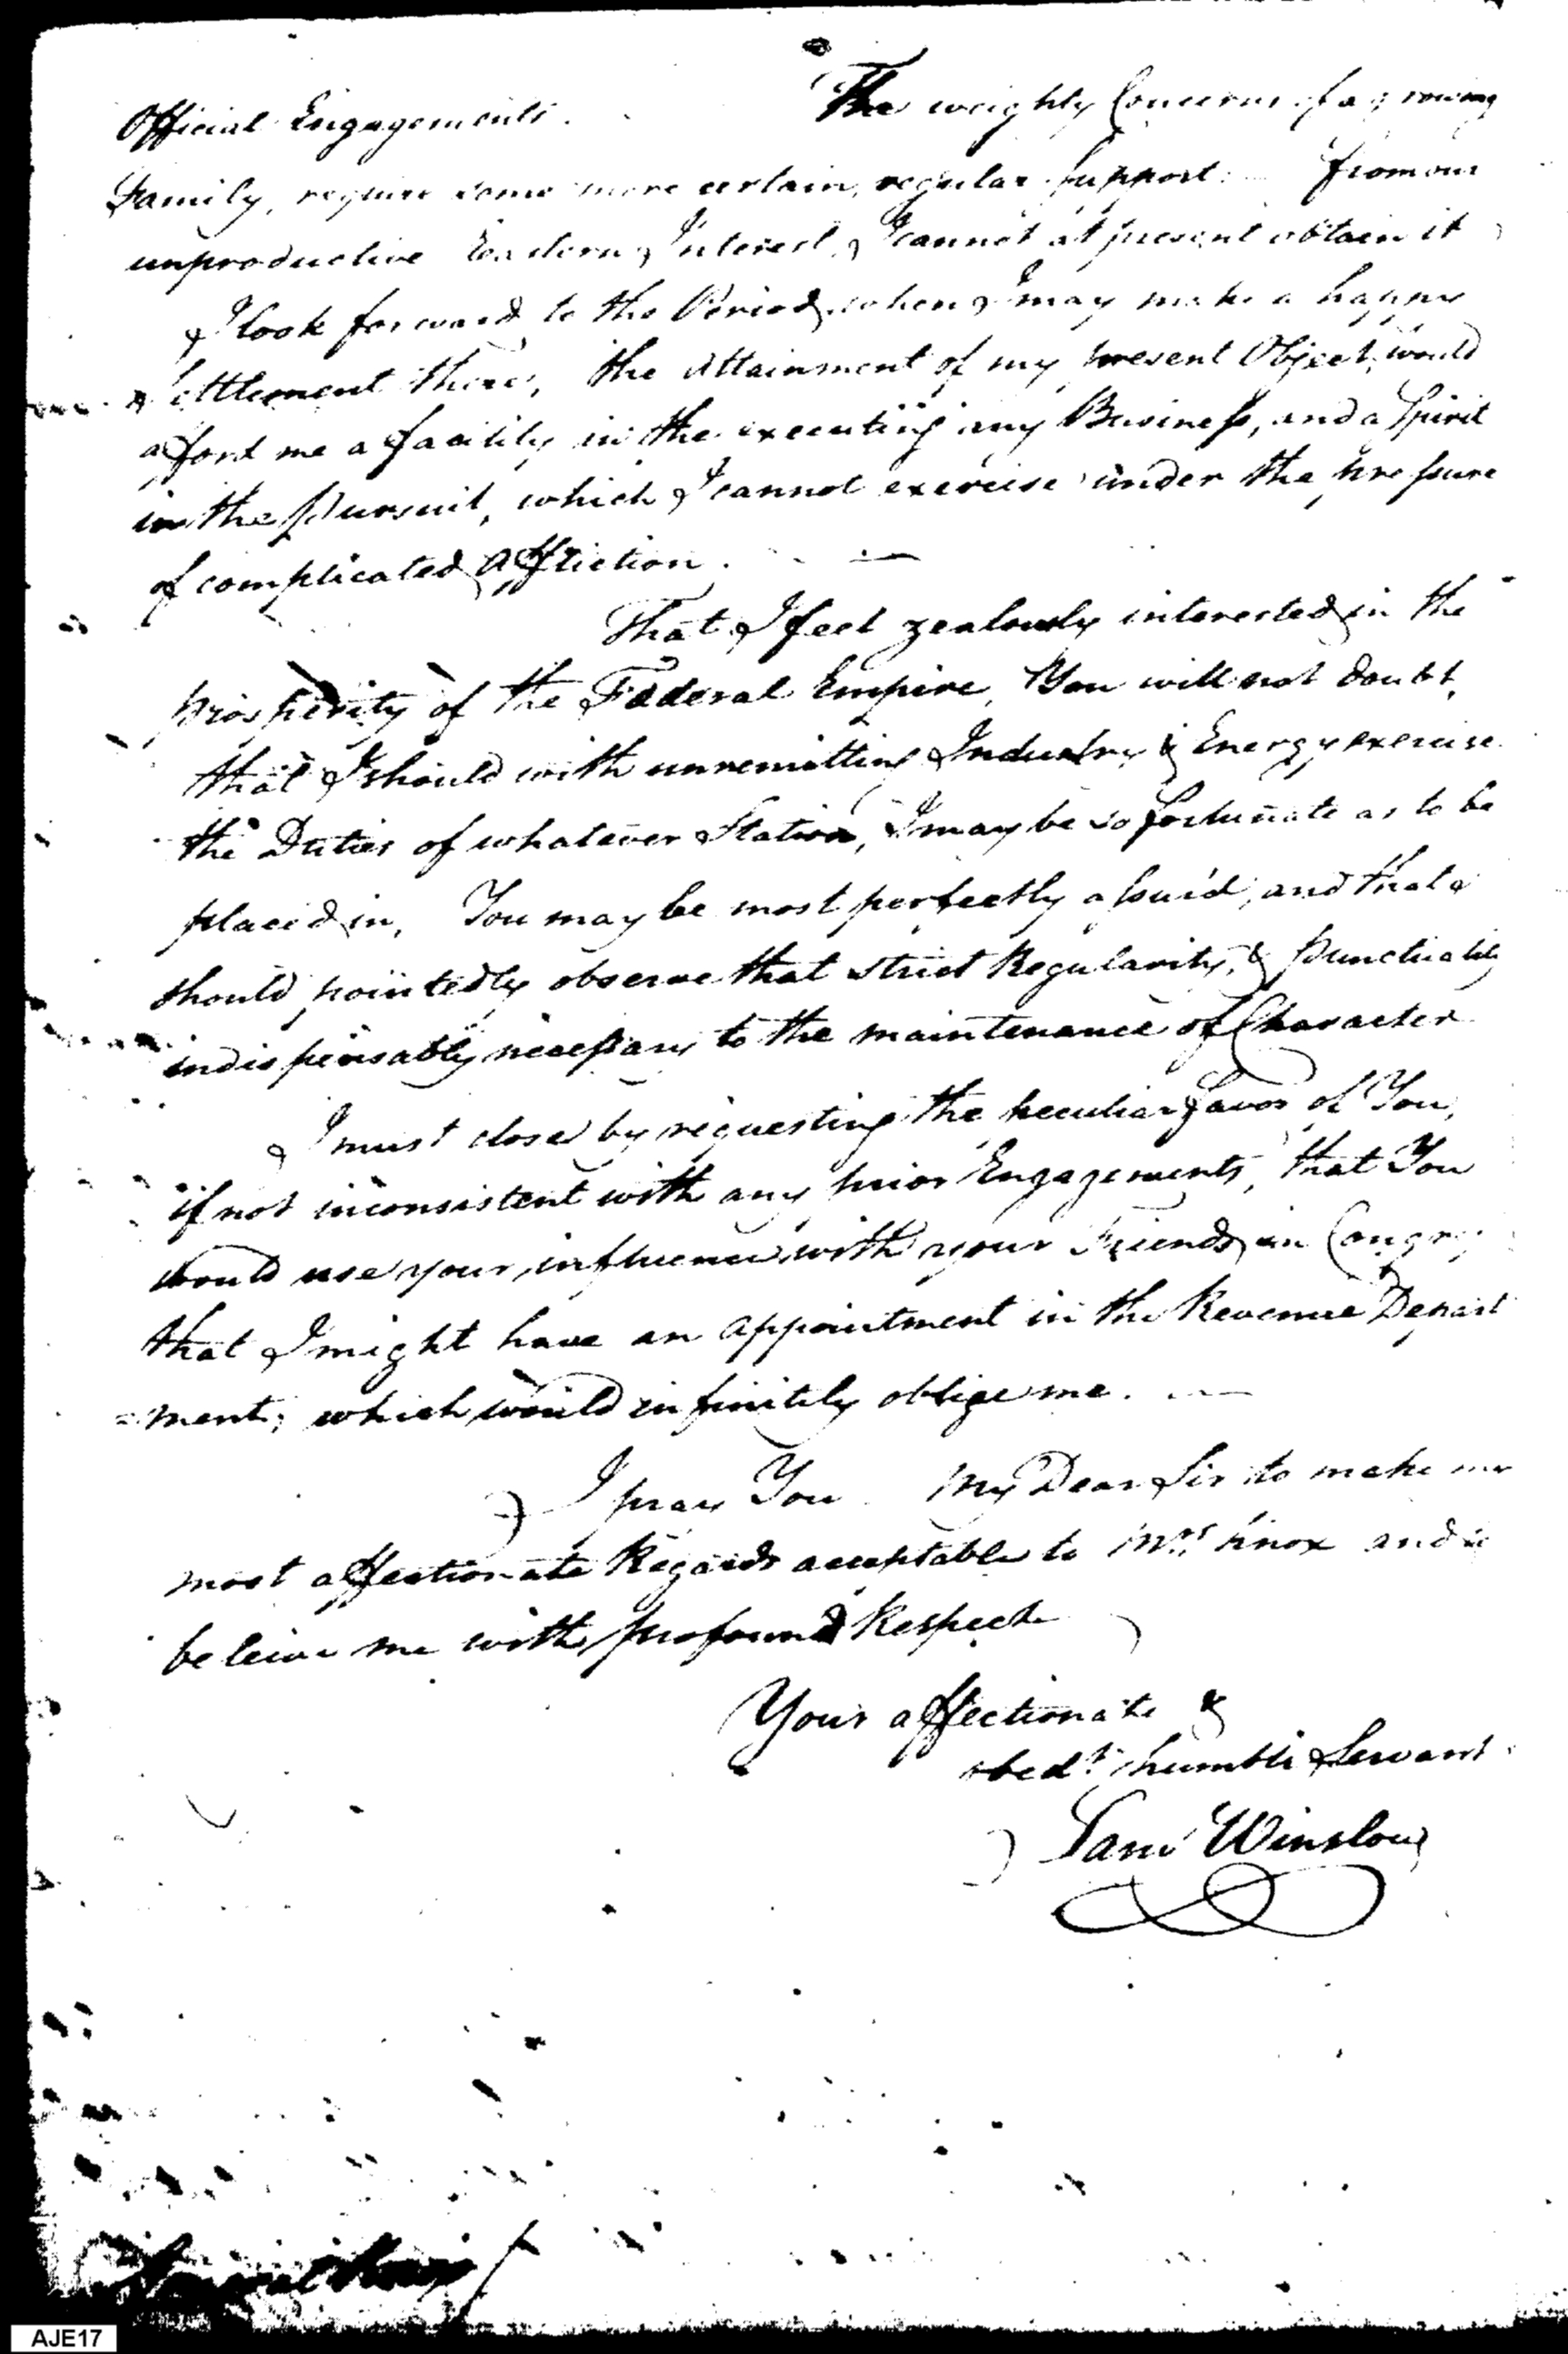 Official Engagements. The weighty Concerns of a growing
Family, require some more certain, regular Support: from our
unproductive Eastern Interest, I cannot at present obtain it
I look forward to the Period, when I may make a happy
Settlement there, the attainment of my present Object, would
afford me a facility in the executing any Business, and a Spirit
in the Pursuit, which I cannot exercise under the pressure
of complicated Affliction. —
That I feel zealously interested in the
prosperity of the Federal Empire, You will not doubt,
that I should with unremitting Industry & Energy exercise
the Duties of whatever Station, I may be so fortunate as to be
placed in, You may be most perfectly assur'd, and that I
should pointedly observe that strict Regularity, & punctuality
indispensably necessary to the maintenance of Character
I must close by requesting the peculiar favor of You,
if not inconsistent with any prior Engagements, that You
would use your influence with your Friends in Congrs
that I might have an appointment in the Revenue Depart
=ment; which would infinitely oblige me. —
I pray You My Dear Sir to make my
most affectionate Regards acceptable to Mrs. Knox and
beleive me with profound Respect
Your affectionate &
obedt. humble Servant
Sam Winslow
AJE17